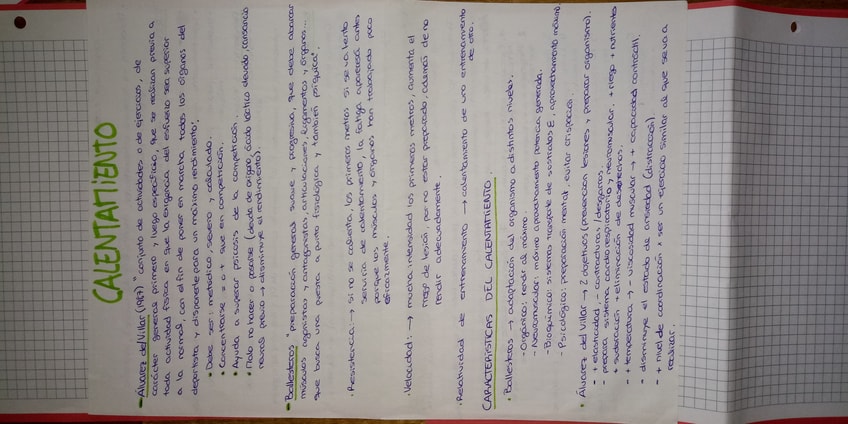 CALENTAMIENTO
- Álvarez del Villar (1987) "conjunto de actividades o de ejercicios, de
carácter general primero y luego específico, que se realizan previa a
toda actividad física en que la exigencia del esfuerzo sea superior
a la normal, con el fin de poner en marcha todos los órganos del
deportista y disponerle para un máximo rendimiento".
• Debe ser: metódico, severo y calculado.
• Concentrarse = o + que en competición.
• Ayuda a superar psicosis de la competición.
• Malo no hacer o pasarse (deuda de oxígeno, ácido láctico elevado, cansancio
neural previo → disminuye el rendimiento).
- Ballesteros "preparación general suave y progresiva, que debe abarcar
músculos agonistas y antagonistas, articulaciones, ligamentos y órganos...
que busca una puesta a punto fisiológica y también psíquica".
• Resistencia → si no se calienta, los primeros metros si va lento
servirá de calentamiento, la fatiga aparecerá antes
porque los músculos y órganos han trabajado poco
eficazmente.
• Velocidad: → mucha intensidad los primeros metros, aumenta el
riesgo de lesión, por no estar preparado, además de no
rendir adecuadamente.
• Relatividad de entrenamiento → calentamiento de uno entrenamiento
de otro.
CARACTERÍSTICAS DEL CALENTAMIENTO.
• Ballesteros → adaptación del organismo a distintos niveles.
- Orgánico; rendir al máximo.
- Neuromuscular; máximo aprovechamiento potencia generada.
- Bioquímico: sistemas transporte de sustratos E, aprovechamiento máximo.
- Psicológico; preparación mental, evitar crispación.
• Álvarez del Villar → 2 objetivos (prevención lesiones y preparar organismo).
- + elasticidad, - contracturas / desgarros.
- prepara sistema cardio respiratorio y neuromuscular. + riego + nutriente
+ sudoración + eliminación de desechos.
- + temperatura → - viscosidad muscular → + capacidad contráctil.
- disminuye el estado de ansiedad (distracción)
- + nivel de coordinación x ser un ejercicio similar al que se va a
realizar.